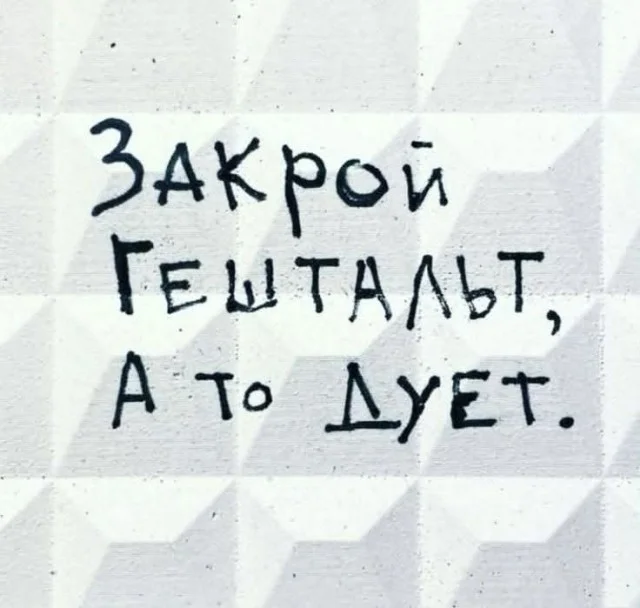 Закрой
гештальт,
а то дует.